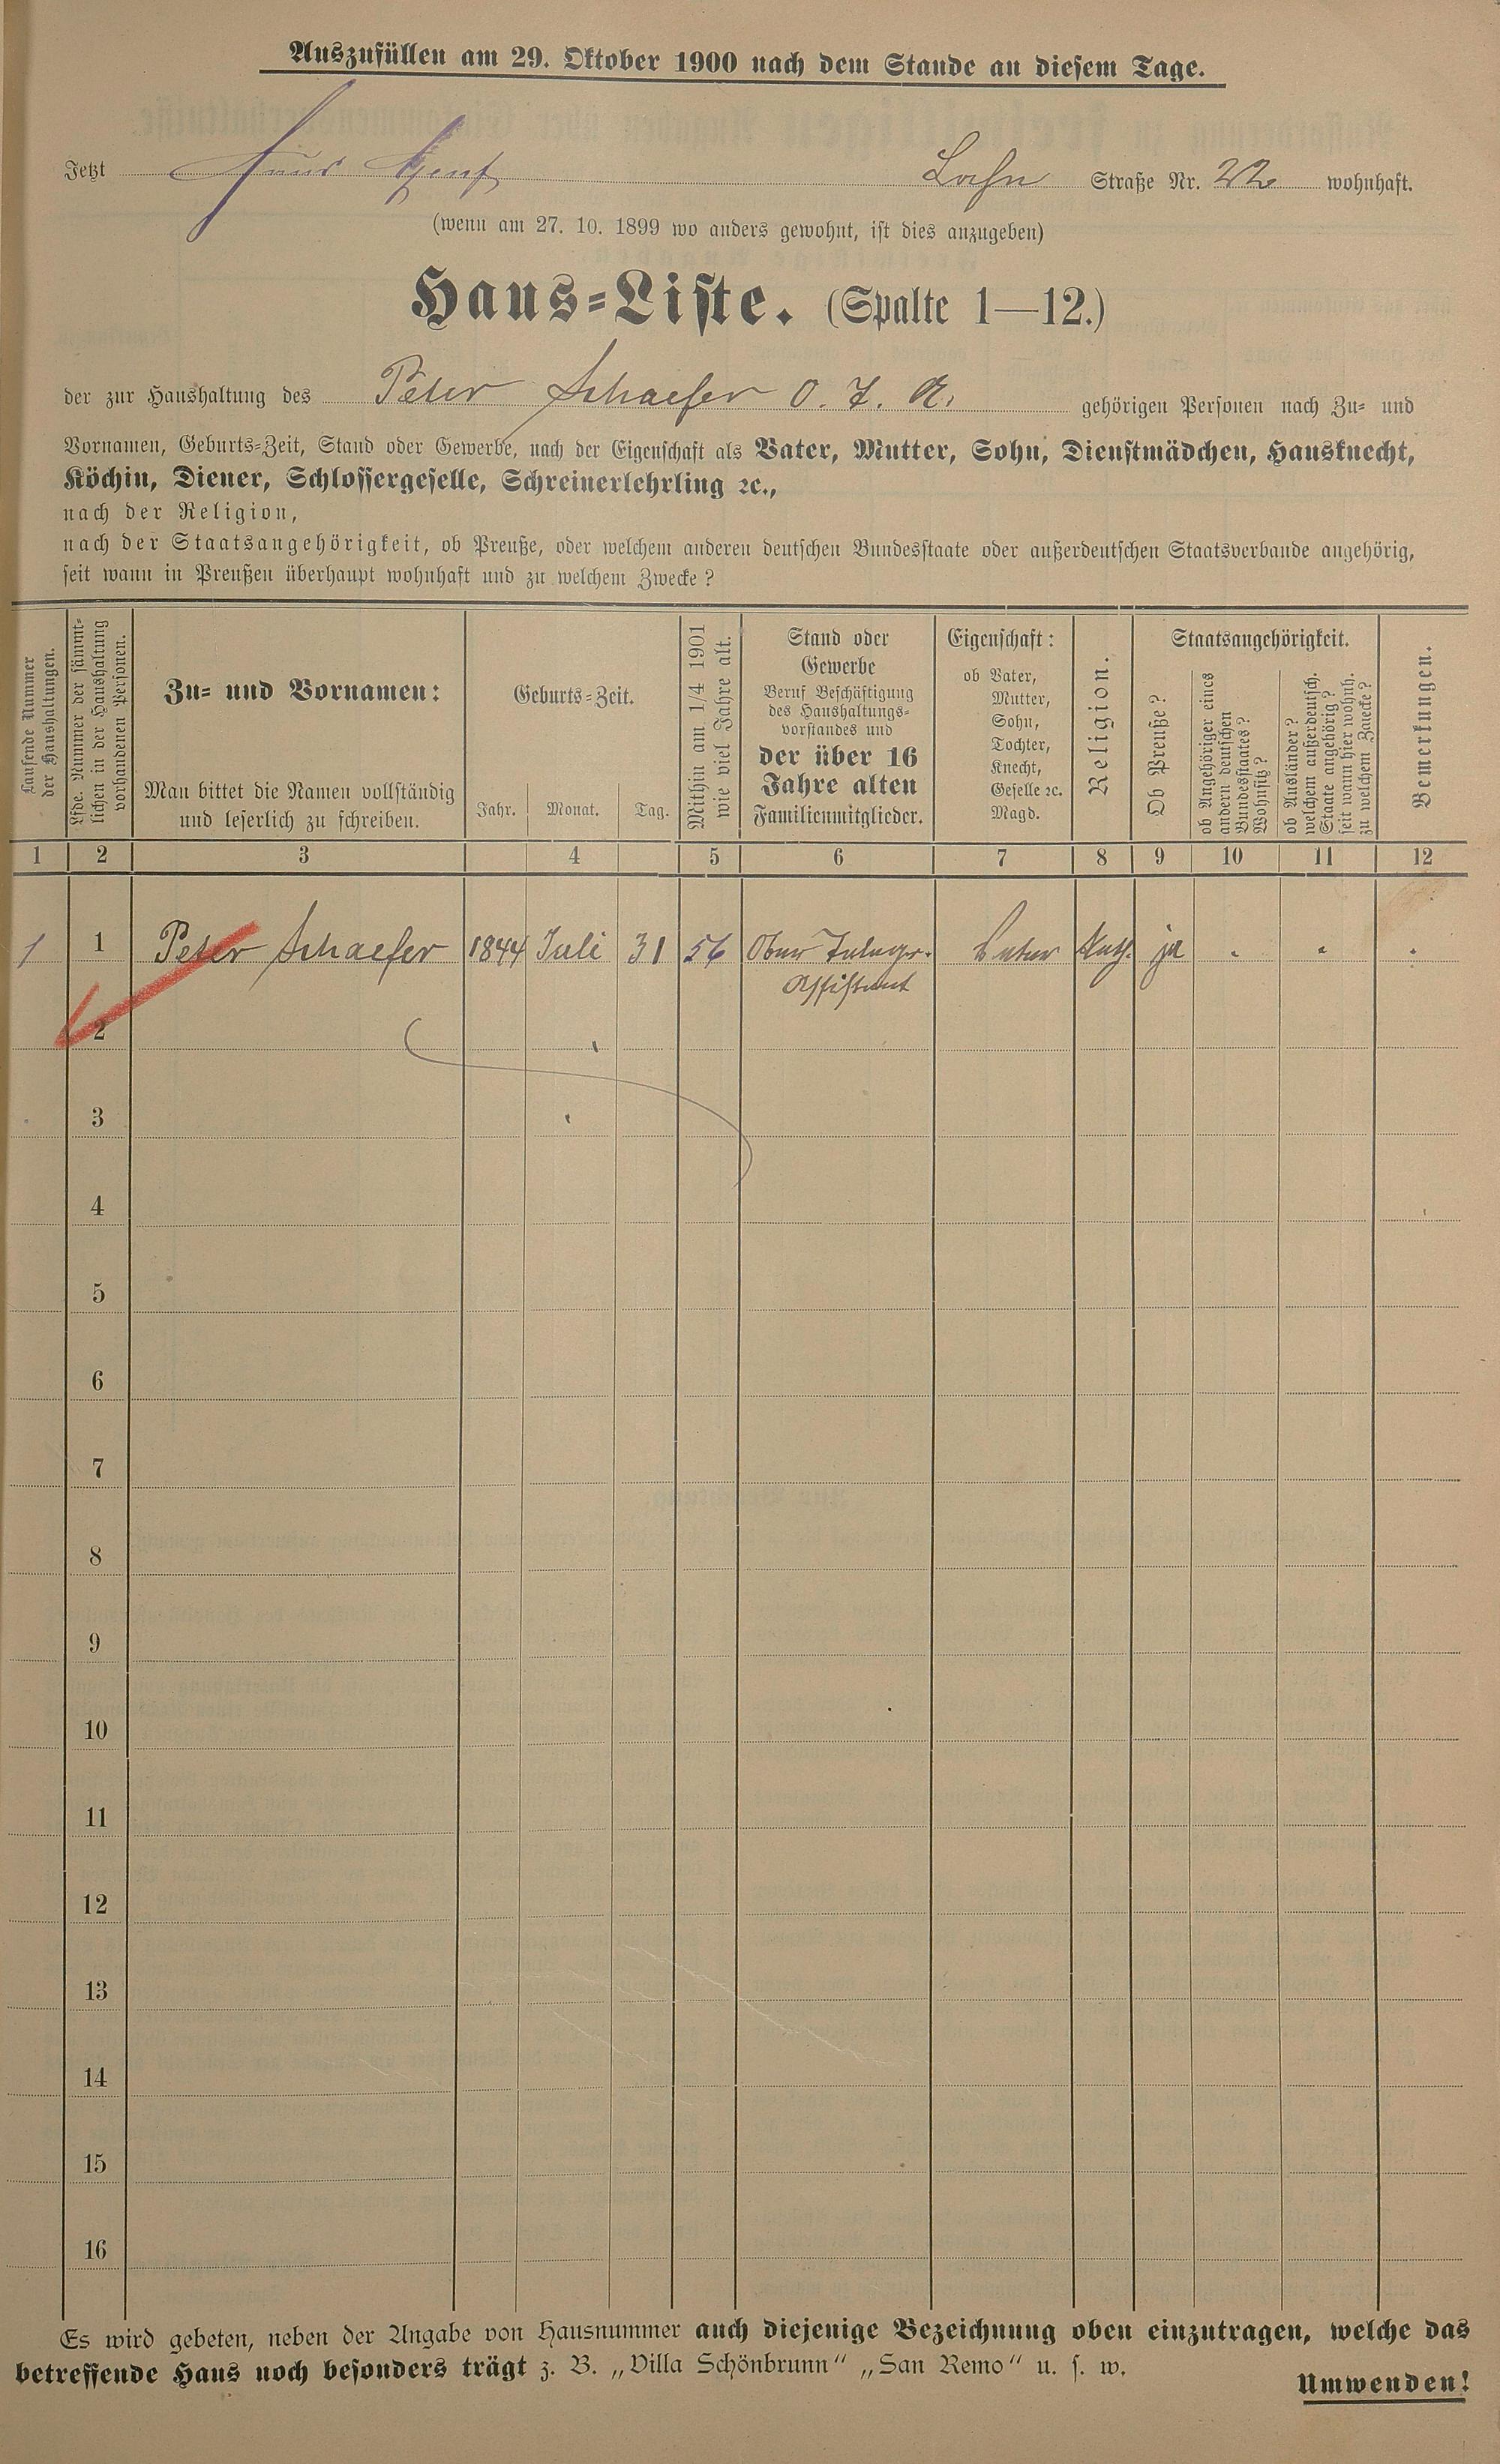 Auszufüllen am 29. Oktober 1900 nach dem Stande an diesem Tage.
Jetzt Haus Genf Lahn Straße Nr. 22 wohnhaft.
(wenn am 27. 10. 1899 wo anders gewohnt, ist dies anzugeben)
Haus-Liste. (Spalte 1—12.)
der zur Haushaltung des Peter Schaefer O. T. A. gehörigen Personen nach Zu- und
Vornamen, Geburts-Zeit, Stand oder Gewerbe, nach der Eigenschaft als Vater, Mutter, Sohn, Dienstmädchen, Hausknecht,
Köchin, Diener, Schlossergeselle, Schreinerlehrling ꝛc.,
nach der Religion,
nach der Staatsangehörigkeit, ob Preuße, oder welchem anderen deutschen Bundesstaate oder außerdeutschen Staatsverbande angehörig,
seit wann in Preußen überhaupt wohnhaft und zu welchem Zwecke?
Laufende Nummer
der Haushaltungen.
Lfde. Nummer der sämmt-
lichen in der Haushaltung
vorhandenen Personen.
Zu- und Vornamen:
Man bittet die Namen vollständig
und leserlich zu schreiben.
Geburts-Zeit.
Jahr. Monat. Tag.
Mithin am 1/4 1901
wie viel Jahre alt.
Stand oder
Gewerbe
Beruf Beschäftigung
des Haushaltungs-
vorstandes und
der über 16
Jahre alten
Familienmitglieder.
Eigenschaft:
ob Vater,
Mutter,
Sohn,
Tochter,
Knecht,
Geselle ꝛc.
Magd.
Religion.
Staatsangehörigkeit.
Ob Preuße?
ob Angehöriger eines
andern deutschen
Bundesstaates?
Wohnsitz?
ob Ausländer?
welchem außerdeutsch.
Staate angehörig?
seit wann hier wohnh.
zu welchem Zwecke?
Bemerkungen.
1 2 3 4 5 6 7 8 9 10 11 12
1 1 Peter Schaefer 1844 Juli 31 56 Ober Telegr. Vater Kath. ja
Assistent
2
3
4
5
6
7
8
9
10
11
12
13
14
15
16
Es wird gebeten, neben der Angabe von Hausnummer auch diejenige Bezeichnung oben einzutragen, welche das
betreffende Haus noch besonders trägt z. B. „Villa Schönbrunn“ „San Remo“ u. s. w.
Umwenden!